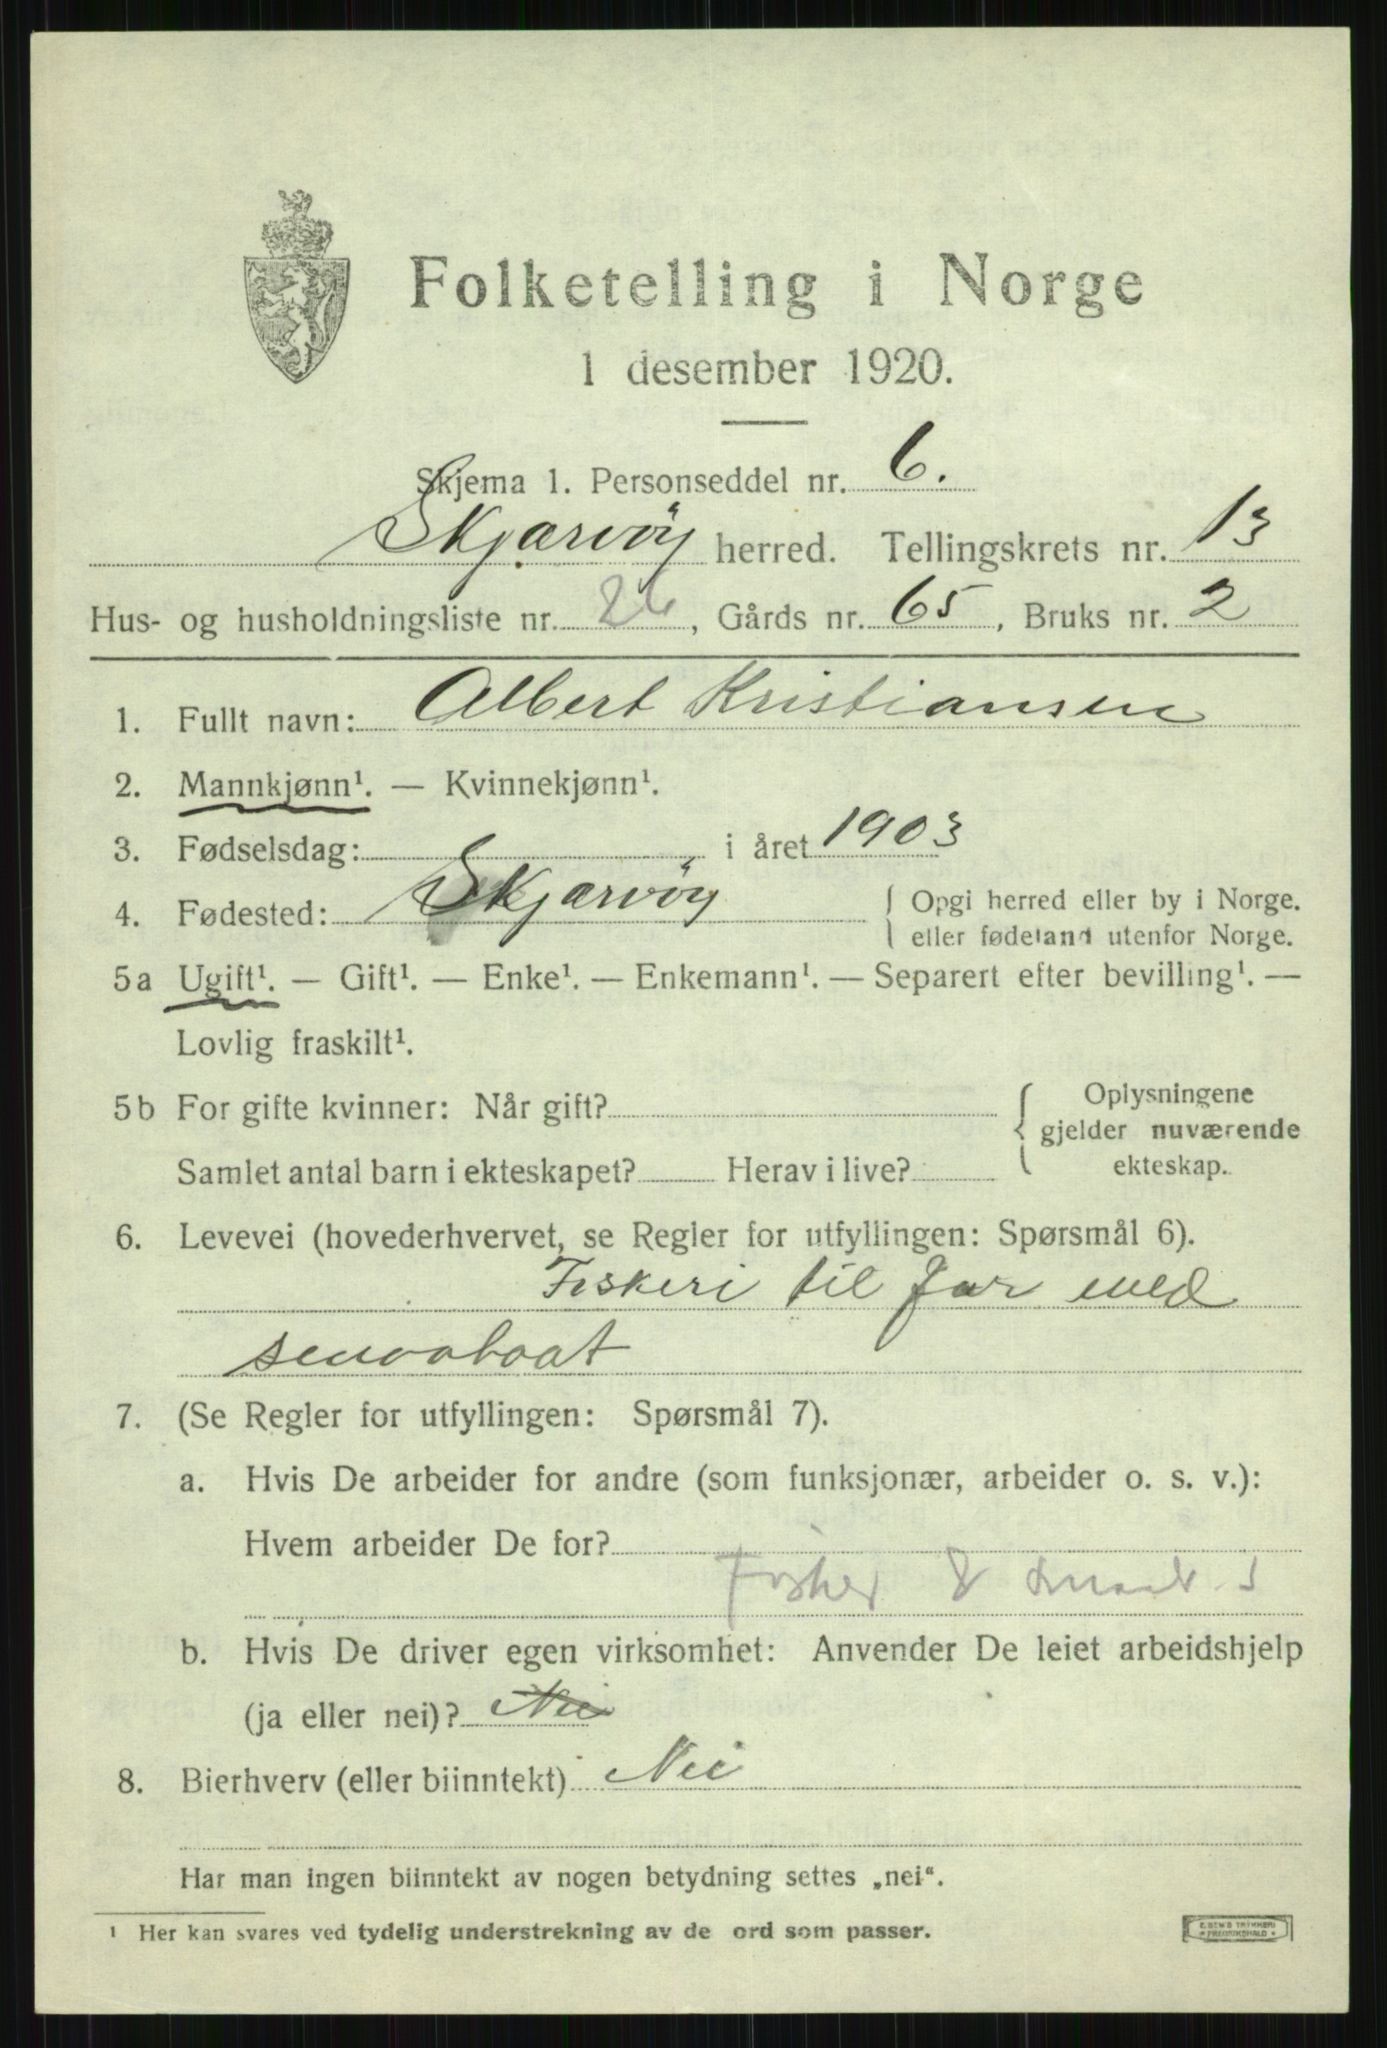 Folketelling i Norge
1 desember 1920.
Skjema 1. Personseddel nr. 6.
Skjærvöy herred. Tellingskrets nr. 13
Hus- og husholdningsliste nr. 26, Gårds nr. 65, Bruks nr. 2
1. Fullt navn: Albert Kristiansen
2. Mannkjønn¹. — Kvinnekjønn¹.
3. Fødselsdag: i året 1903
4. Fødested: Skjærvöy { Opgi herred eller by i Norge.
eller fødeland utenfor Norge.
5a Ugift¹. — Gift¹. — Enke¹. — Enkemann¹. — Separert efter bevilling¹. —
Lovlig fraskilt¹.
5b For gifte kvinner: Når gift? { Oplysningene
gjelder nuværende
Samlet antal barn i ekteskapet? Herav i live? ekteskap.
6. Levevei (hovederhvervet, se Regler for utfyllingen: Spørsmål 6).
Fiskeri til far med
smaabaat
7. (Se Regler for utfyllingen: Spørsmål 7).
a. Hvis De arbeider for andre (som funksjonær, arbeider o. s. v.):
Hvem arbeider De for?
Fisker
b. Hvis De driver egen virksomhet: Anvender De leiet arbeidshjelp
(ja eller nei)? Nei
8. Bierhverv (eller biinntekt) Nei
Har man ingen biinntekt av nogen betydning settes „nei“.
¹ Her kan svares ved tydelig understrekning av de ord som passer.